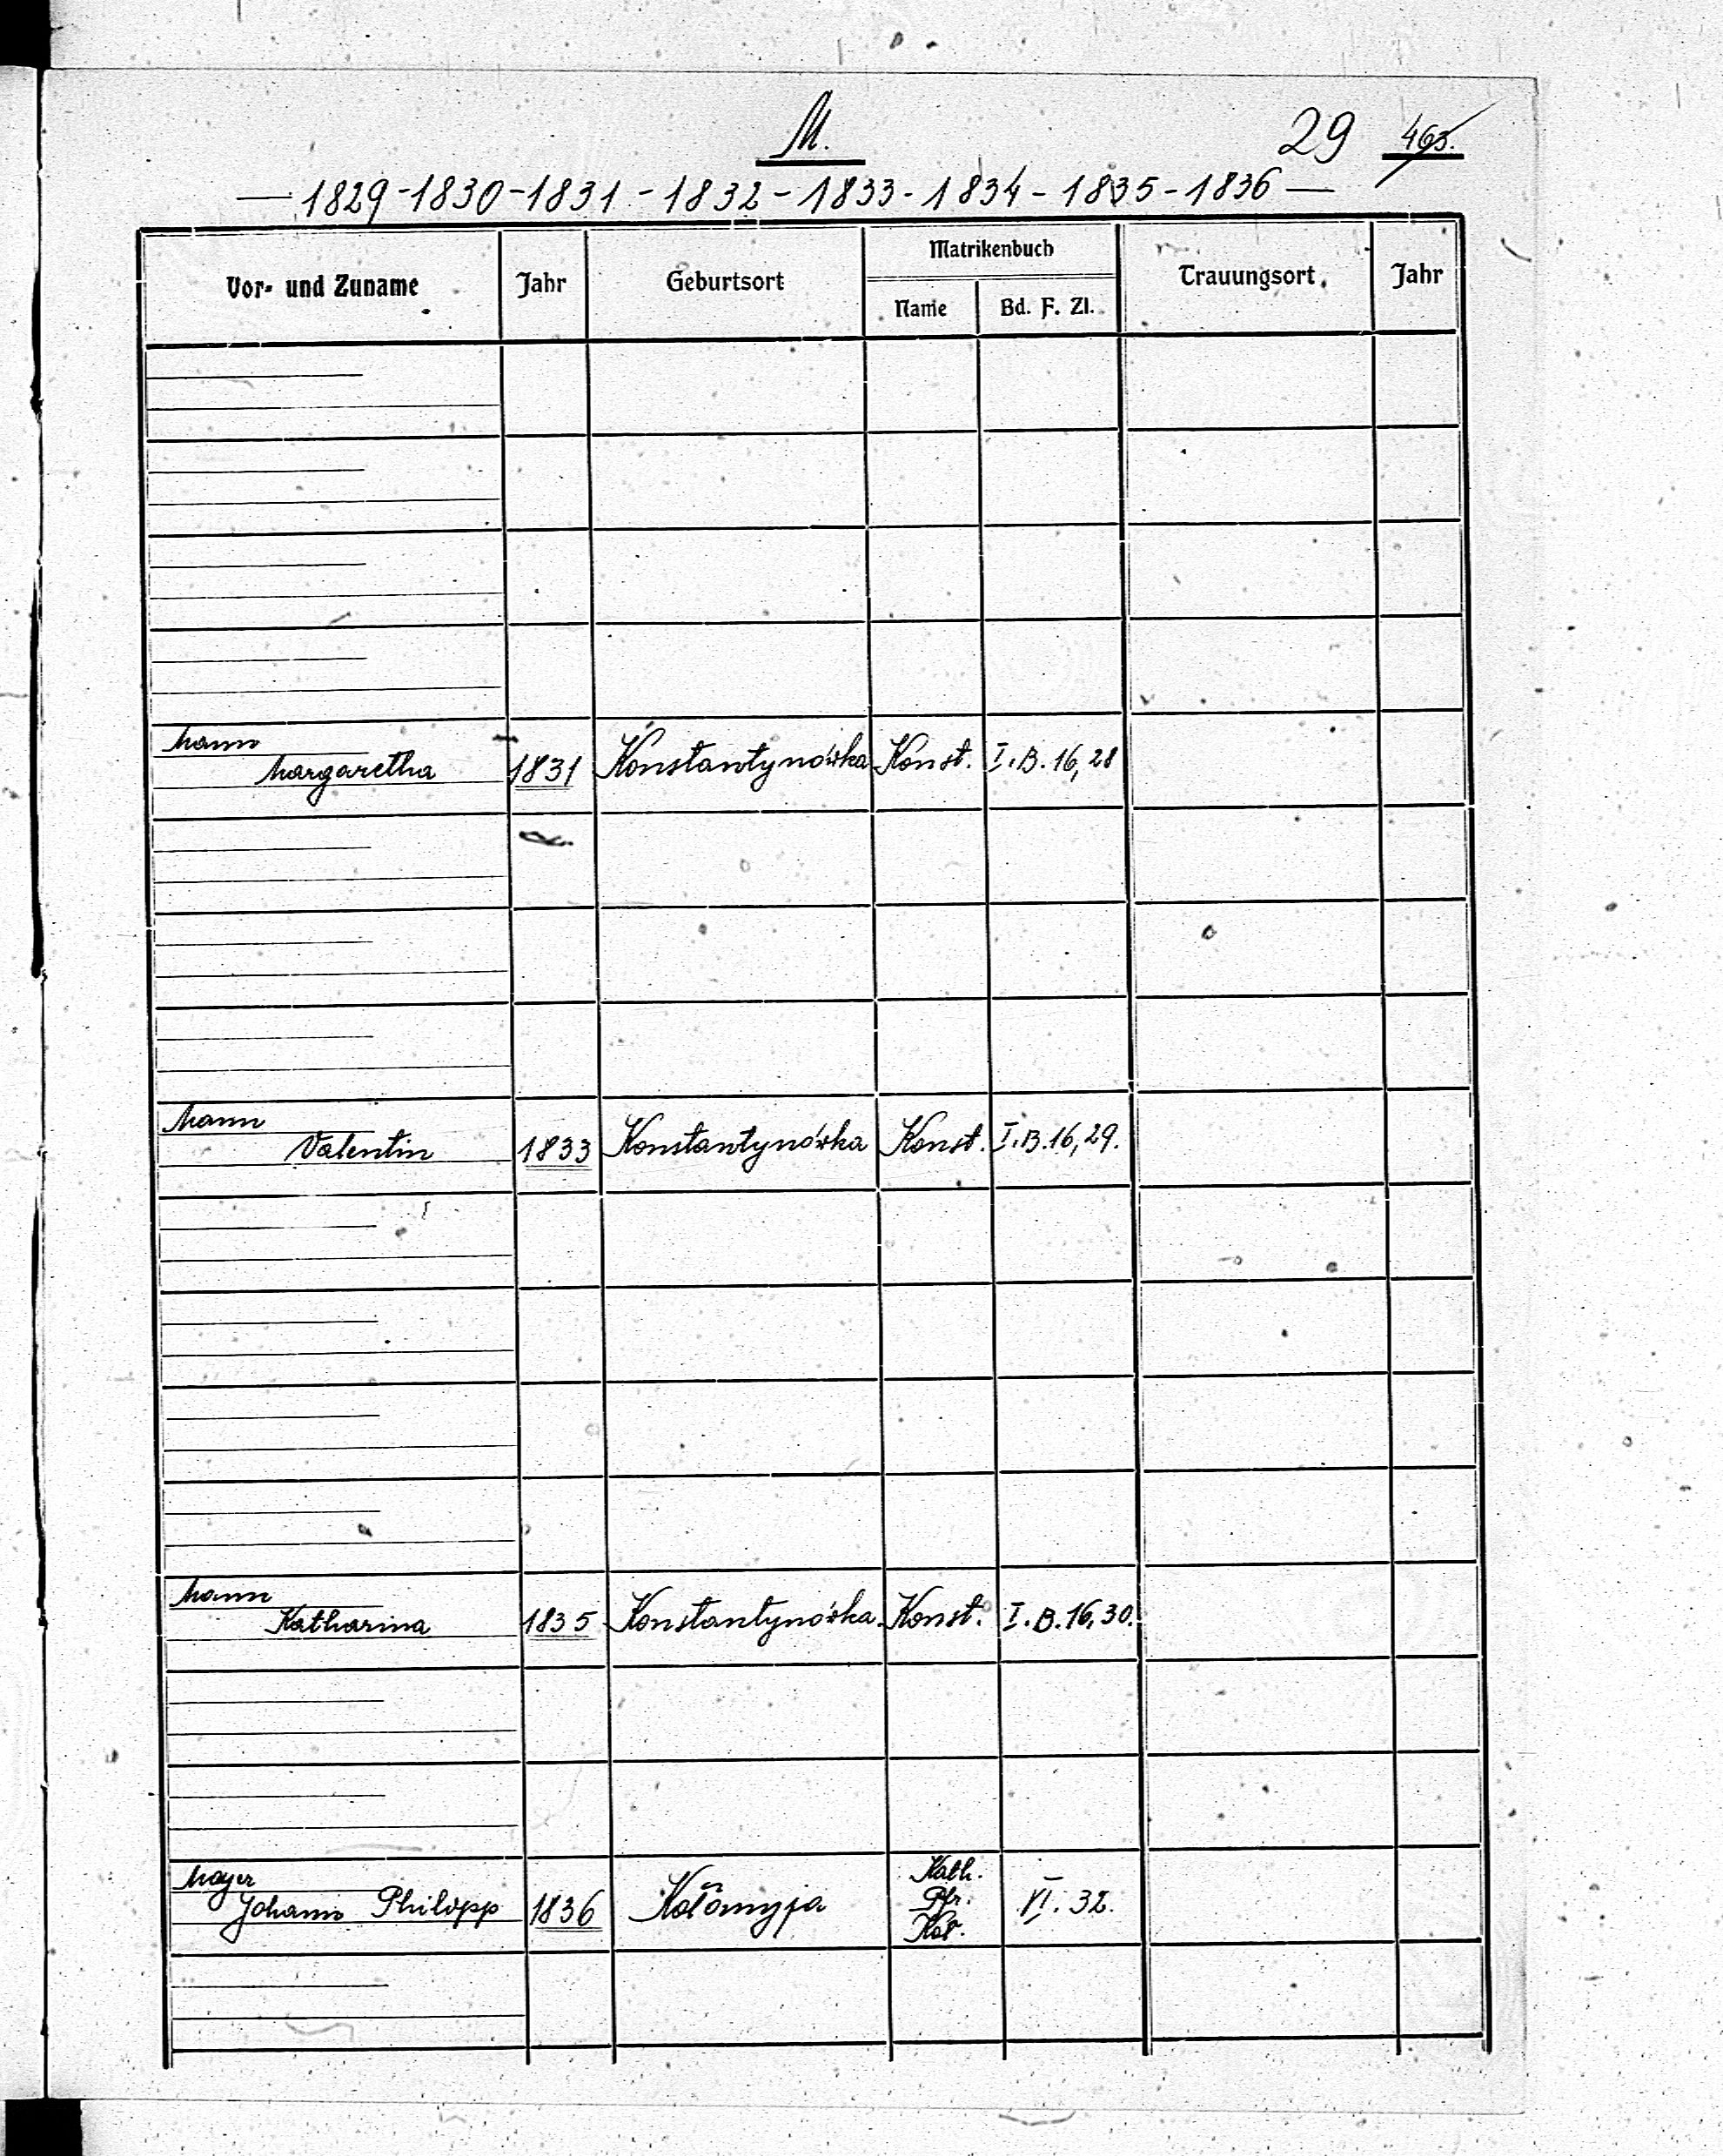 M.
29 463.
— 1829 - 1830 - 1831 - 1832 - 1833 - 1834 - 1835 - 1836 —
Vor- und Zuname Jahr Geburtsort Matrikenbuch Trauungsort Jahr
Name Bd. F. Zl.
Mann
Margaretha 1831 Konstantynówka Konst. I. B. 16, 28
Mann
Valentin 1833 Konstantynówka Konst. I. B. 16, 29.
Mann
Katharina 1835 Konstantynówka Konst. I. B. 16, 30.
Mayer Kath.
Johann Philipp 1836 Kołomyja Pfr. VI. 32.